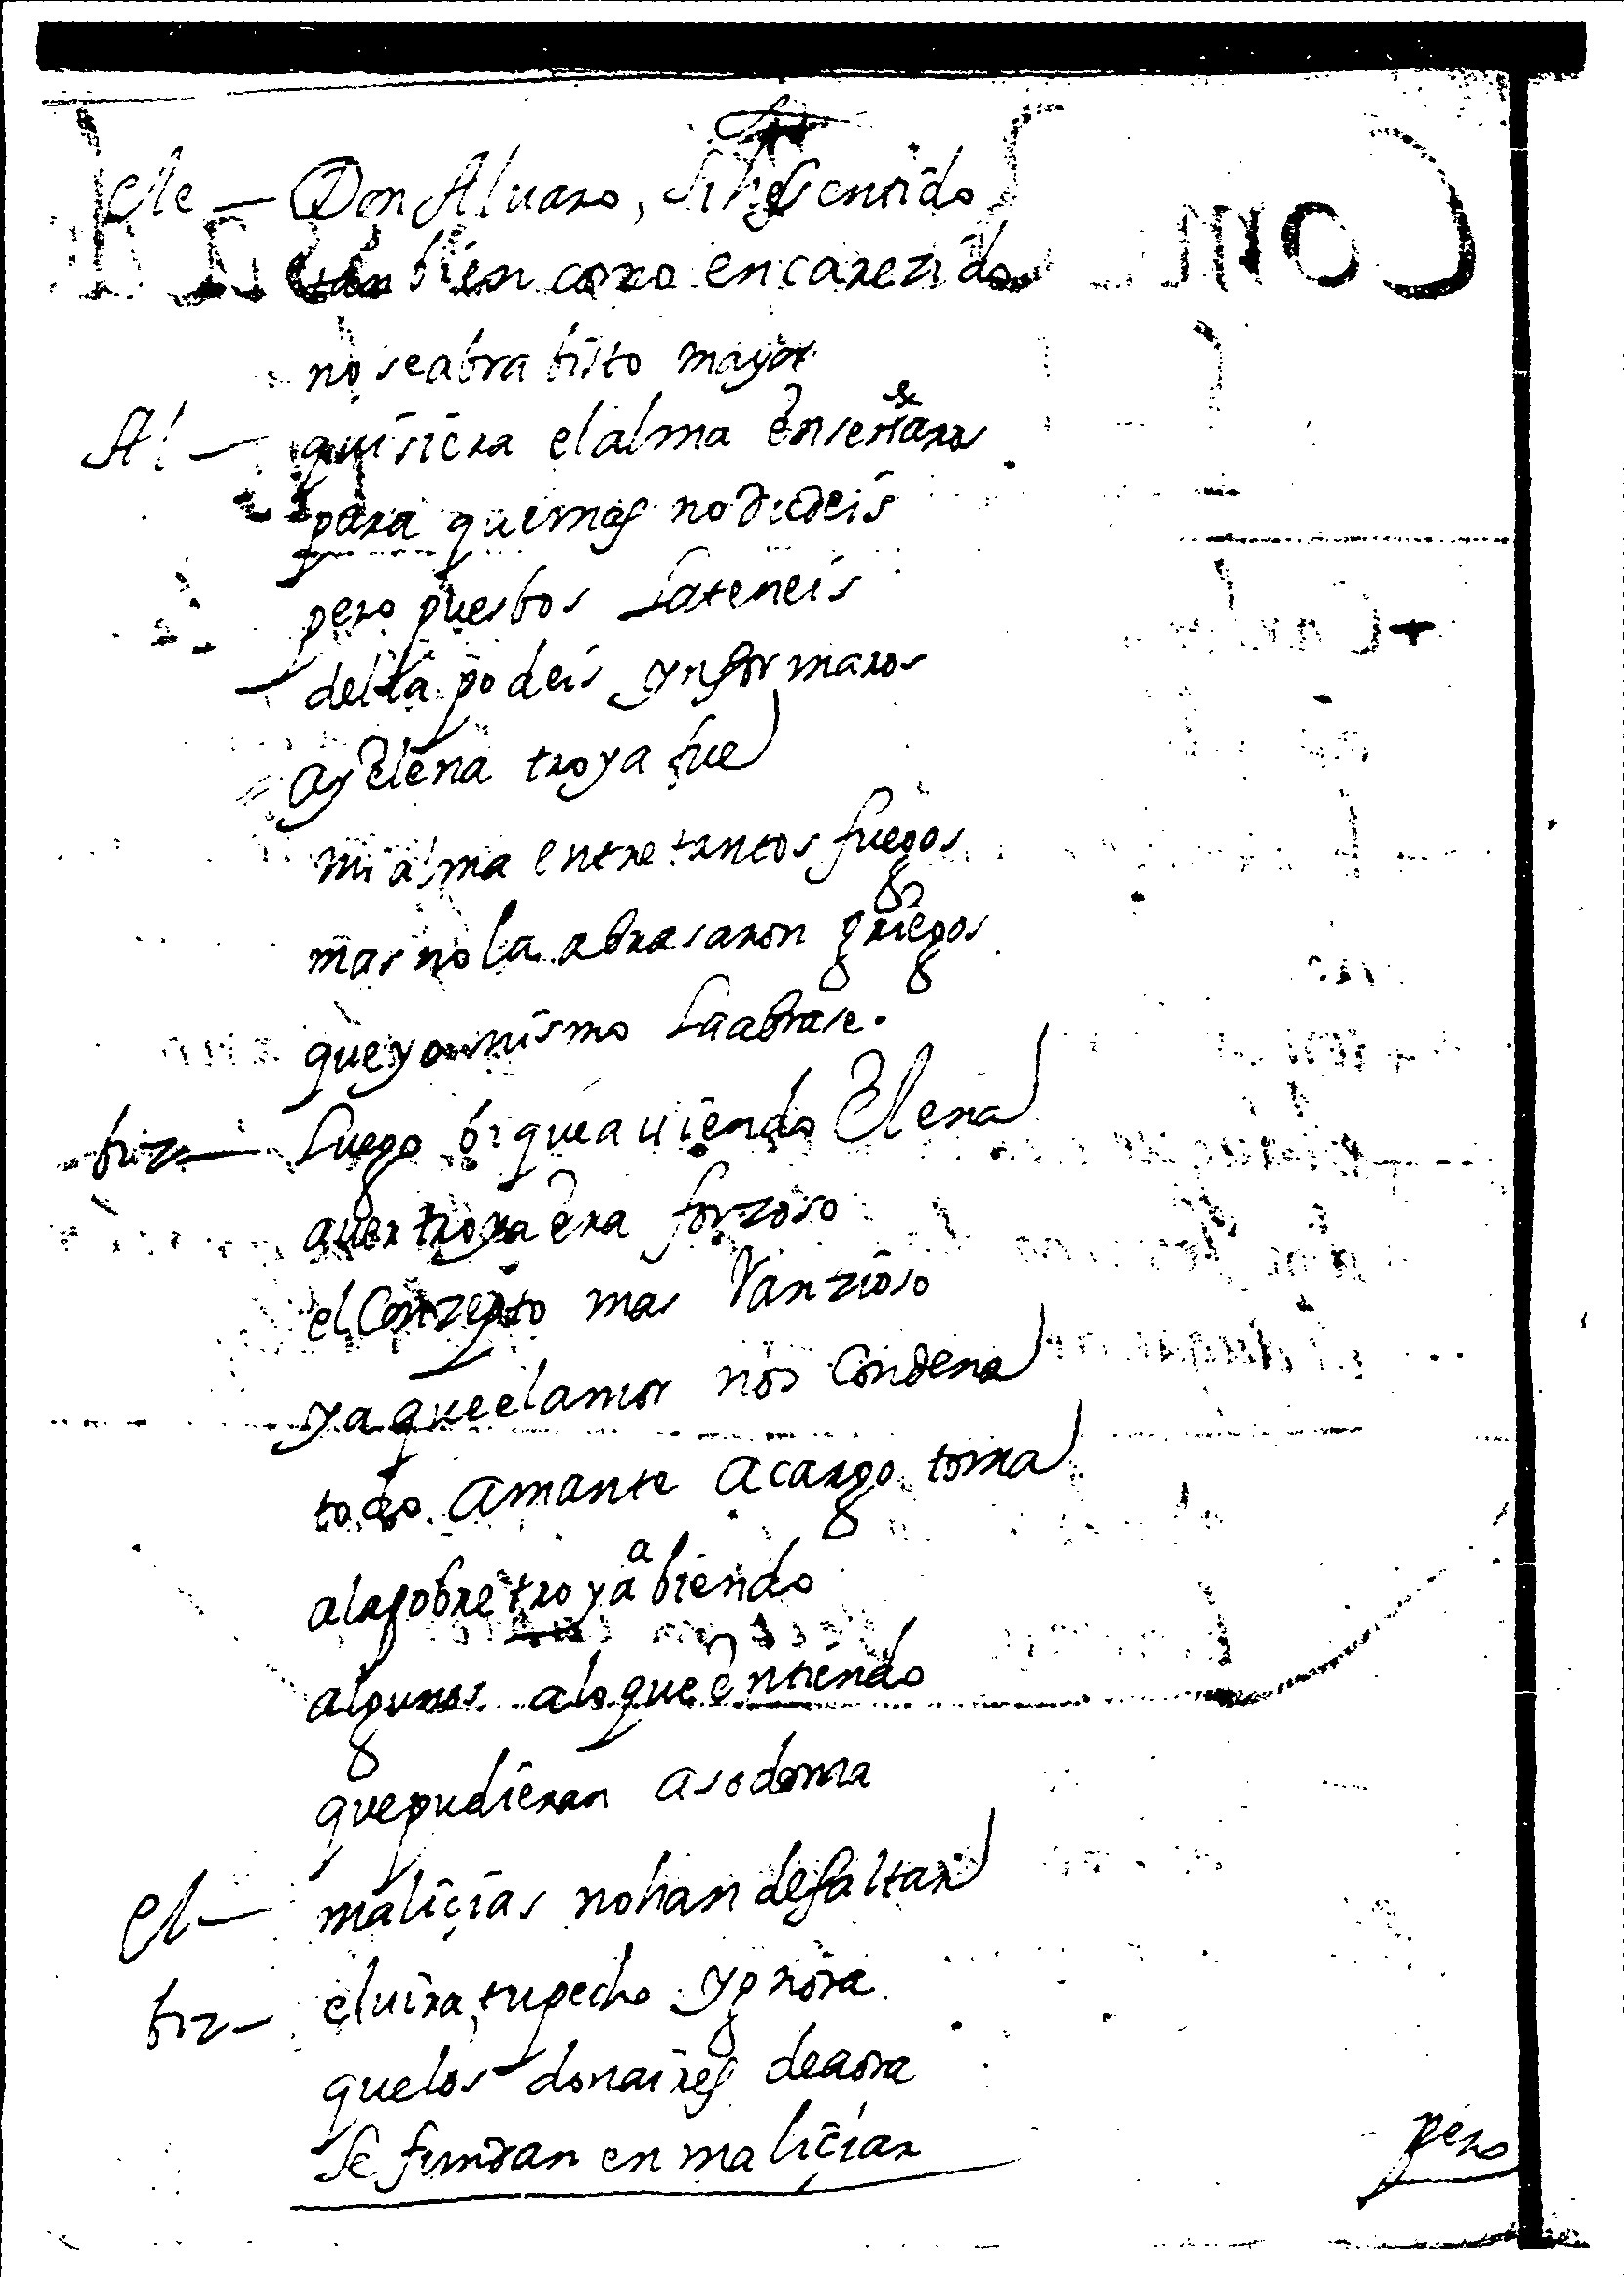 Ele — Don Aluaro, si he sentido
tan bien como encarezido
no se abra bisto mayor
Al — quisiera el alma enseñaros
para que mas no dudeis
pero pues bos la teneis
della podeis ynformaros
ay elena troya fue
mi alma entre tantos fuegos
mas no la abrasaron griegos
que yo mismo la abrase.
biz — luego bi que auiendo Elena
auer troya era forzoso
el Conzepto mas Ranzioso
ya que el amor nos Condena
todo amante a cargo toma
a la pobre troya abiendo
algunos a lo que entiendo
que pudieran a sodoma
El — malicias no han de faltar
biz — eluira, tu pecho ygnora
que los donaires de aora
se fundan en maliciar
pero